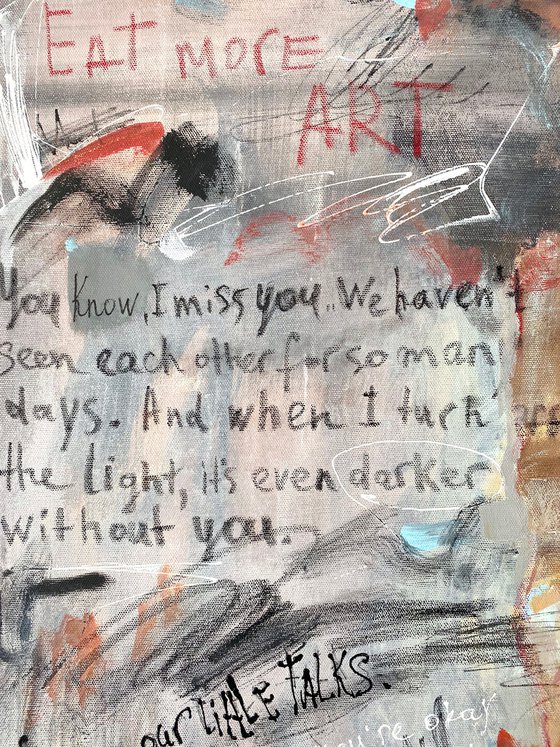 EAT MORE
ART
You Know, I miss you.. We haven't
seen each other for so man
days. And when I turn
the light, it's even darker
without you.
our little TALKS.
you're okay